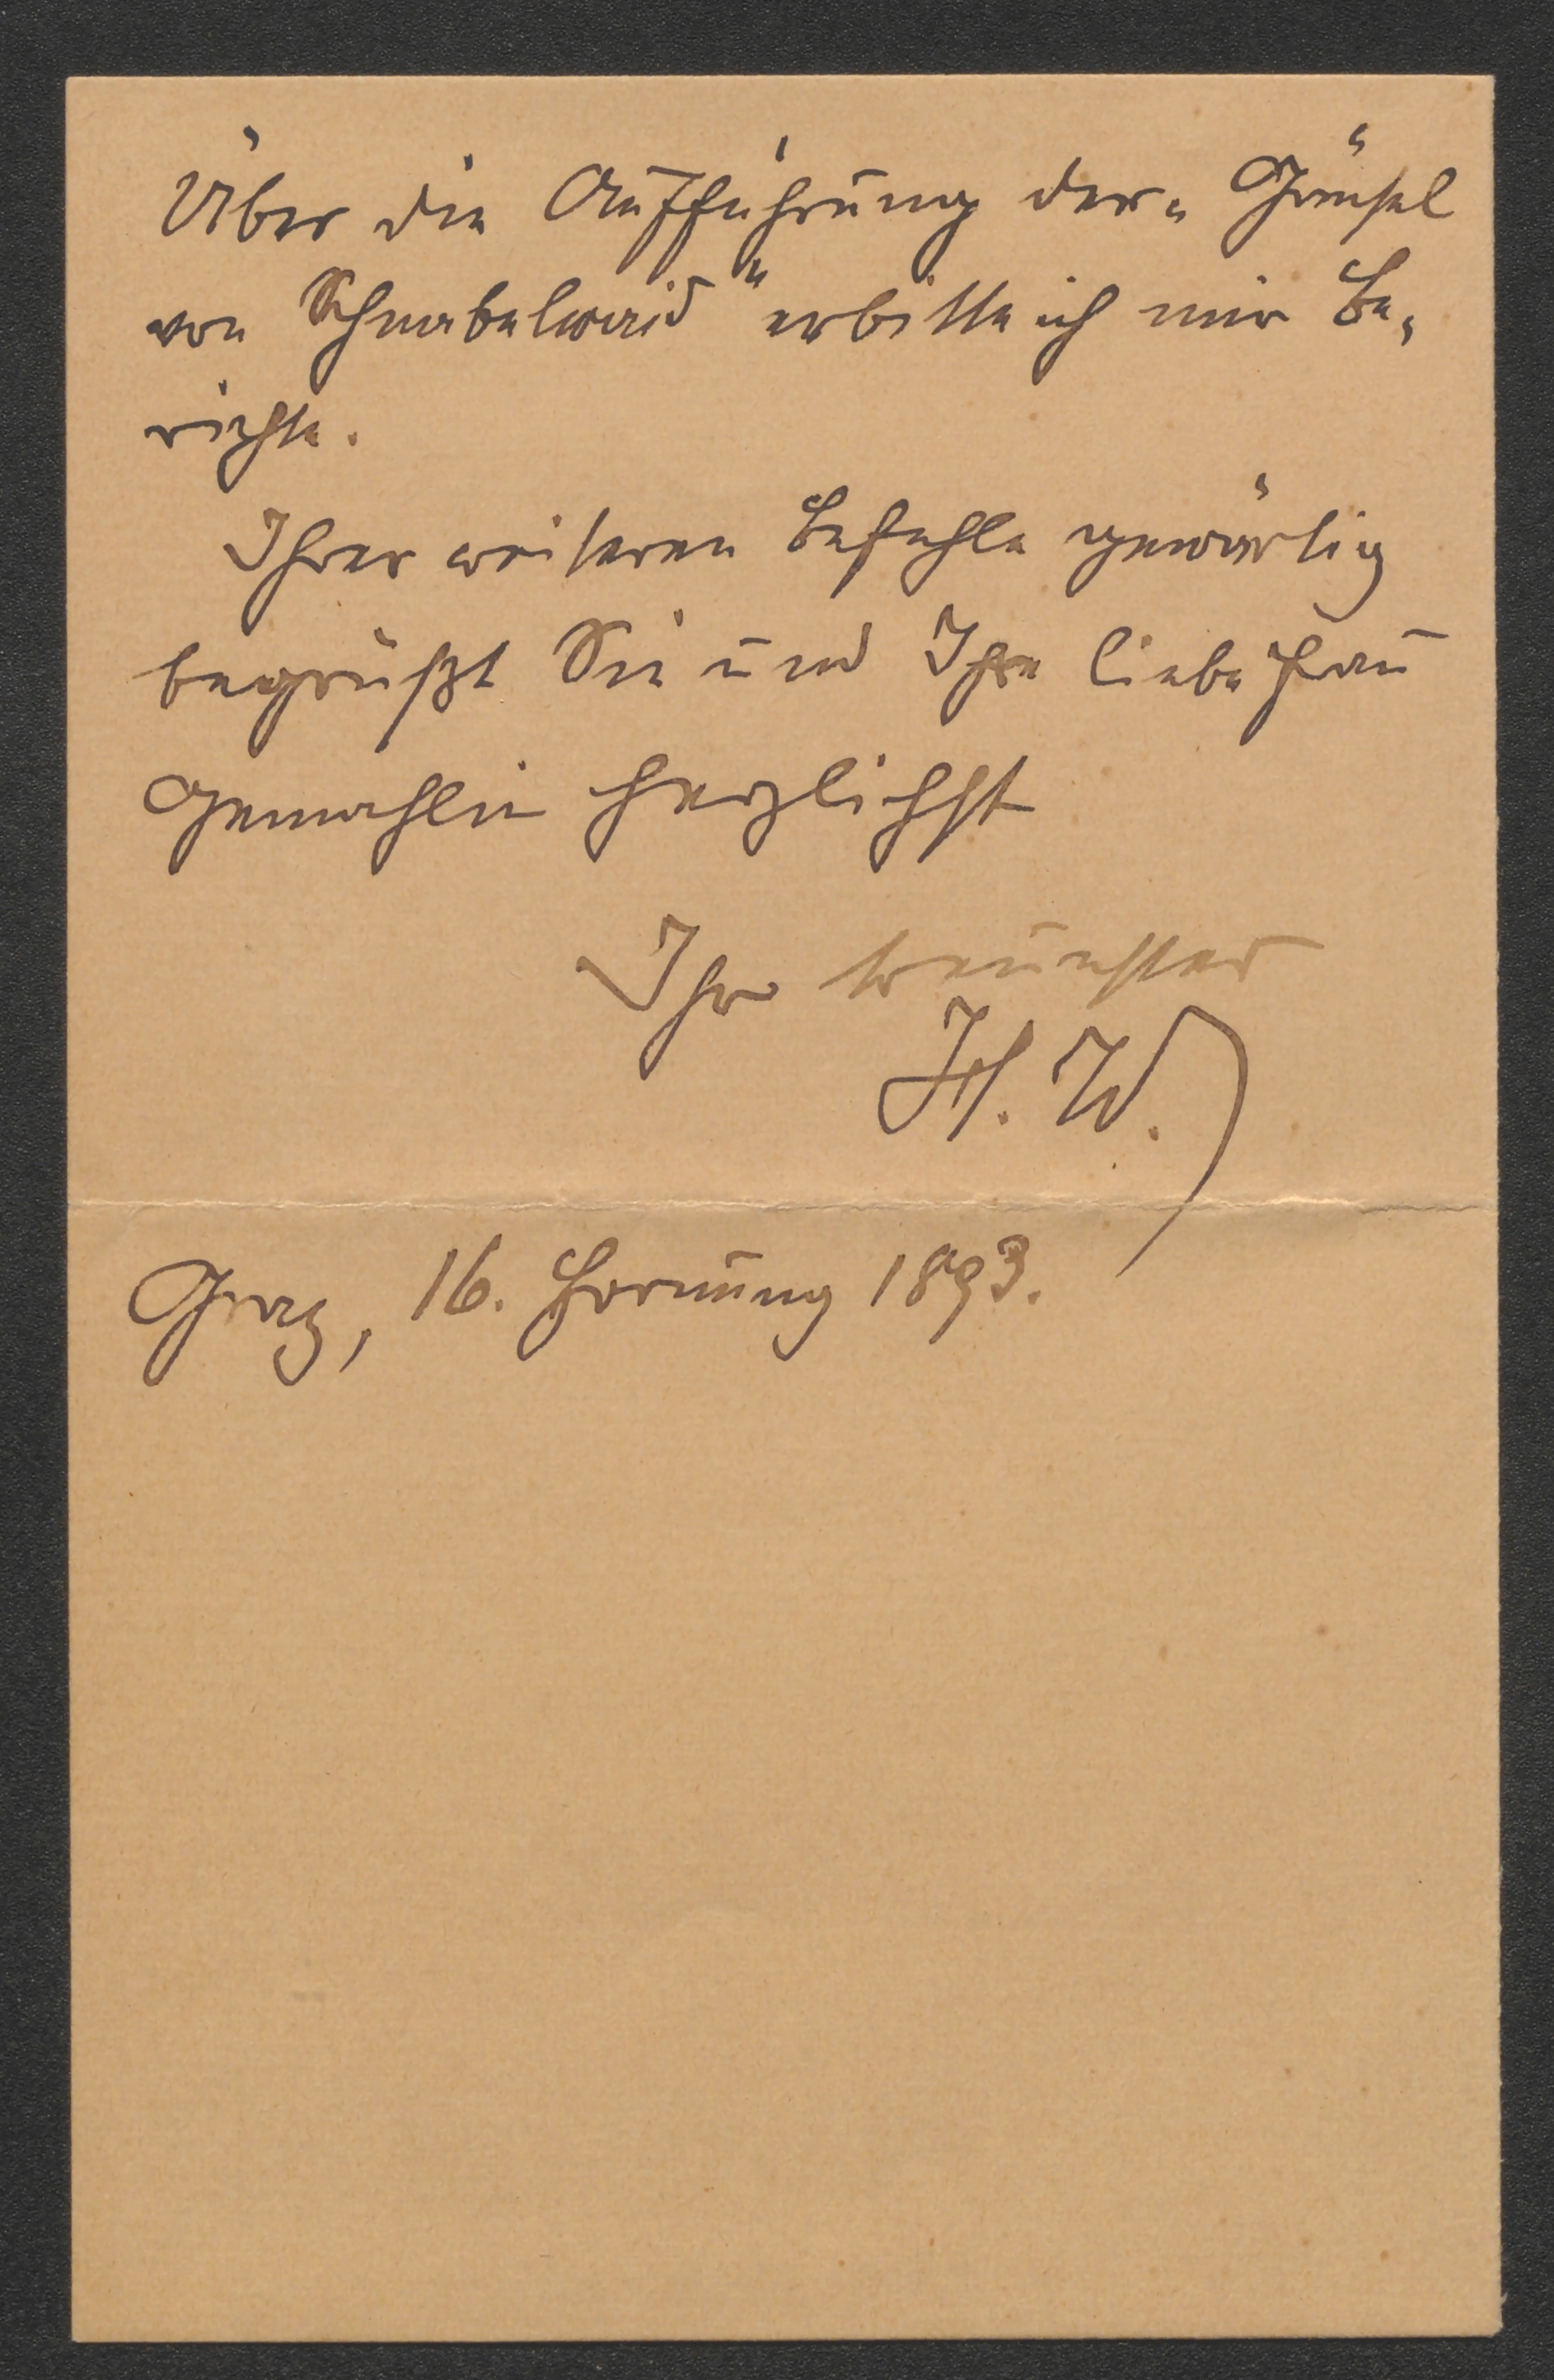 Über die Aufführung der „Gänsel
von Schnabelwaid" erbitte ich mir Be-
richte.
Ihrer weiteren Befehle gewärtig
begrüßt Sie und Ihre liebe Frau
Gemahlin herzlichst
Ihr treuester
H. W.
Graz, 16. Hornung 1893.